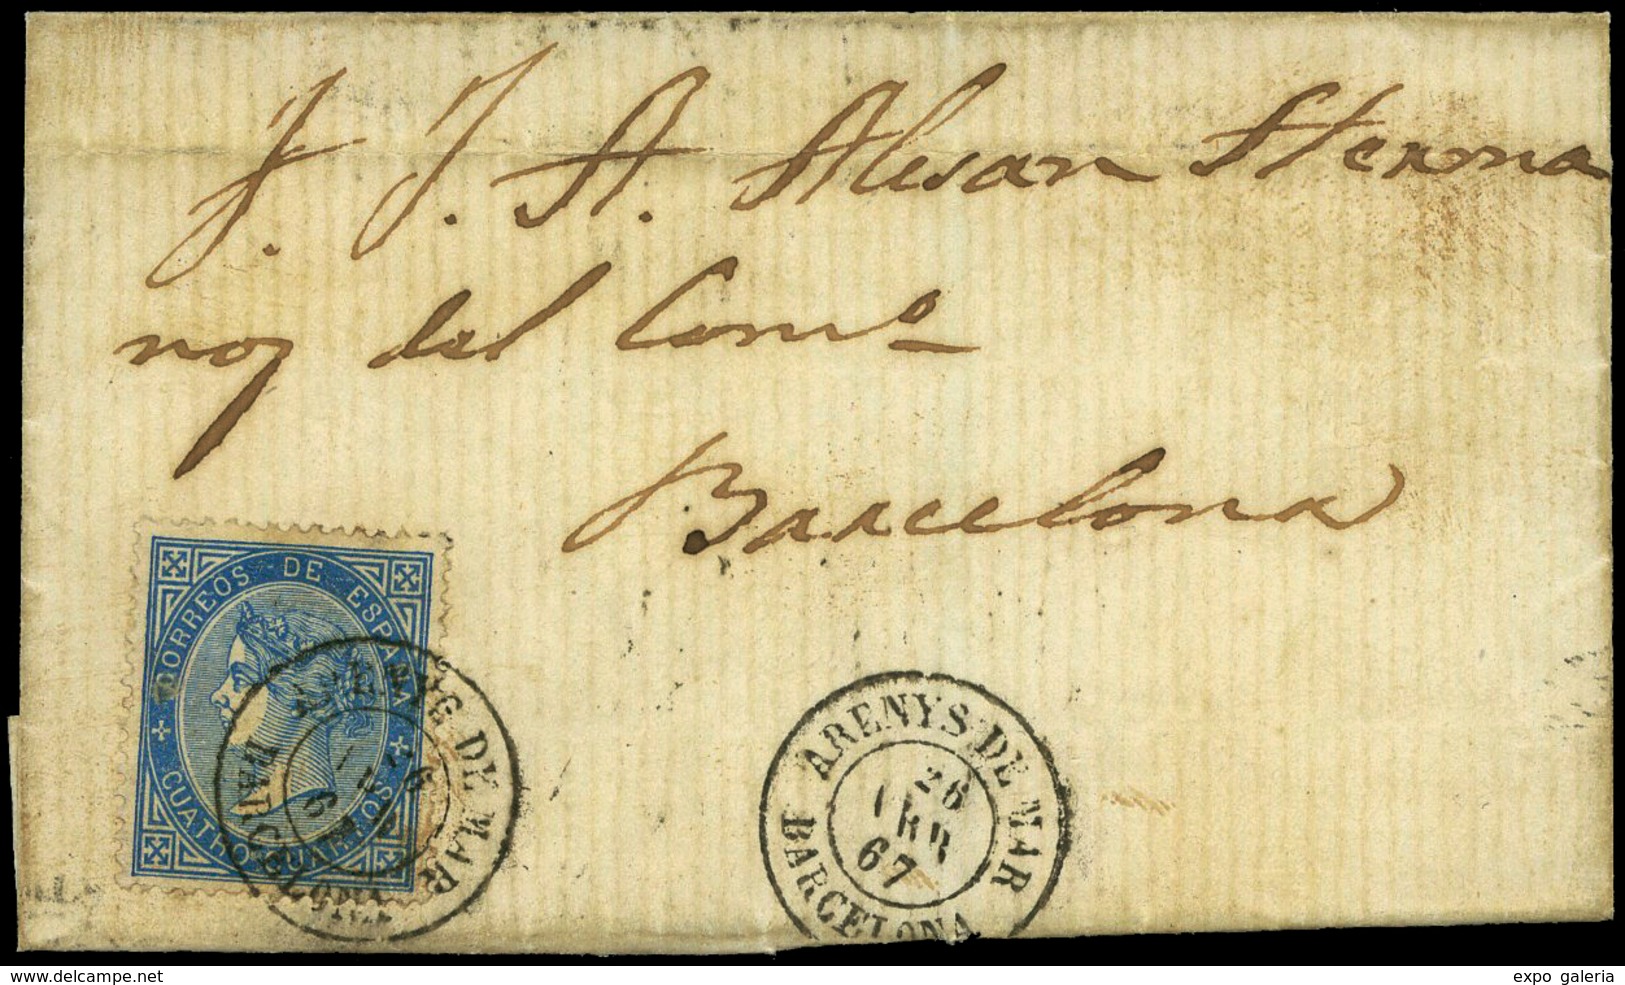 J. J. A. Alesan Herma
nos del Comº
Barcelona
CORREOS DE ESPAÑA
CUATRO CUARTOS
ARENYS DE MAR
BARCELONA
ARENYS DE MAR
26
FEB
67
BARCELONA
www.delcampe.net
expo galeria